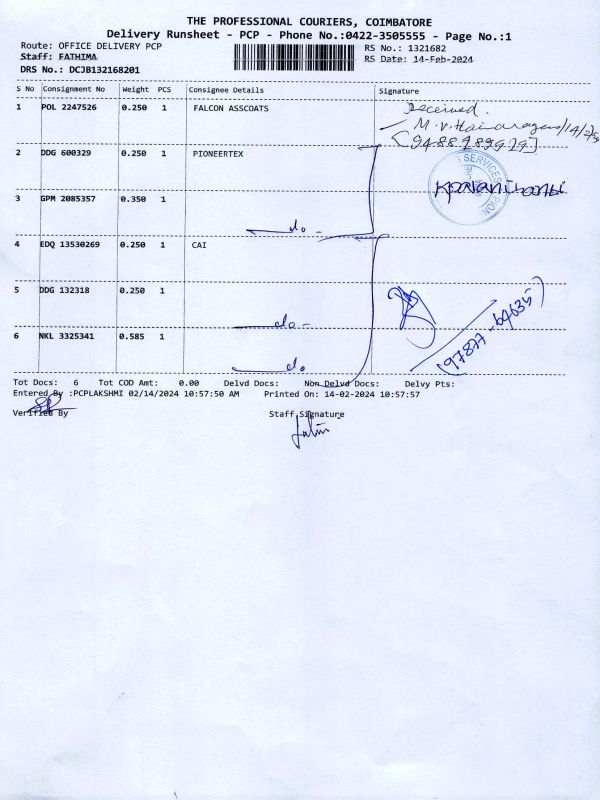 THE PROFESSIONAL COURIERS, COIMBATORE
Delivery Runsheet - PCP - Phone No.:0422-3505555 - Page No.:1
Route: OFFICE DELIVERY PCP RS No.: 1321682
Staff: FATHIMA RS Date: 14-Feb-2024
DRS No.: DCJB132168201
S No Consignment No Weight PCS Consignee Details Signature
1 POL 2247526 0.250 1 FALCON ASSCOATS
Received.
2 DDG 600329 0.250 1 PIONEERTEX
SERVICES
3 GPM 2085357 0.350 1
do -
4 EDQ 13530269 0.250 1 CAI
5 DDG 132318 0.250 1
do -
(97877-64635)
6 NKL 3325341 0.585 1
do.
Tot Docs: 6 Tot COD Amt: 0.00 Delvd Docs: Non Delvd Docs: Delvy Pts:
Entered By :PCPLAKSHMI 02/14/2024 10:57:50 AM Printed On: 14-02-2024 10:57:57
Verified By Staff Signature